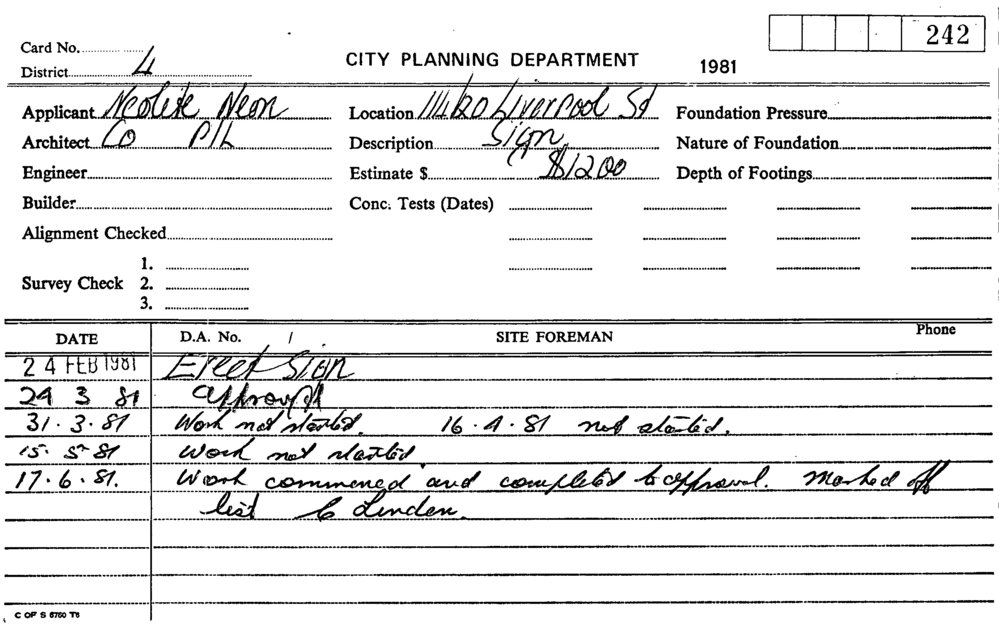 242
Card No.
District 4
CITY PLANNING DEPARTMENT 1981
Applicant Neolite Neon Location 114/20 Liverpool St Foundation Pressure
Architect Co P/L Description Sign Nature of Foundation
Engineer Estimate $ $1200 Depth of Footings
Builder Conc. Tests (Dates)
Alignment Checked
1.
Survey Check 2.
3.
DATE D.A. No. / SITE FOREMAN Phone
24 FEB 1981 Erect Sign
24 3 81 approved
31.3.81 Work not started. 16.4.81 not started.
15.5.81 Work not started.
17.6.81. Work commenced and completed to approval. Marked off
list C Linden.
C OF S 6750 T6